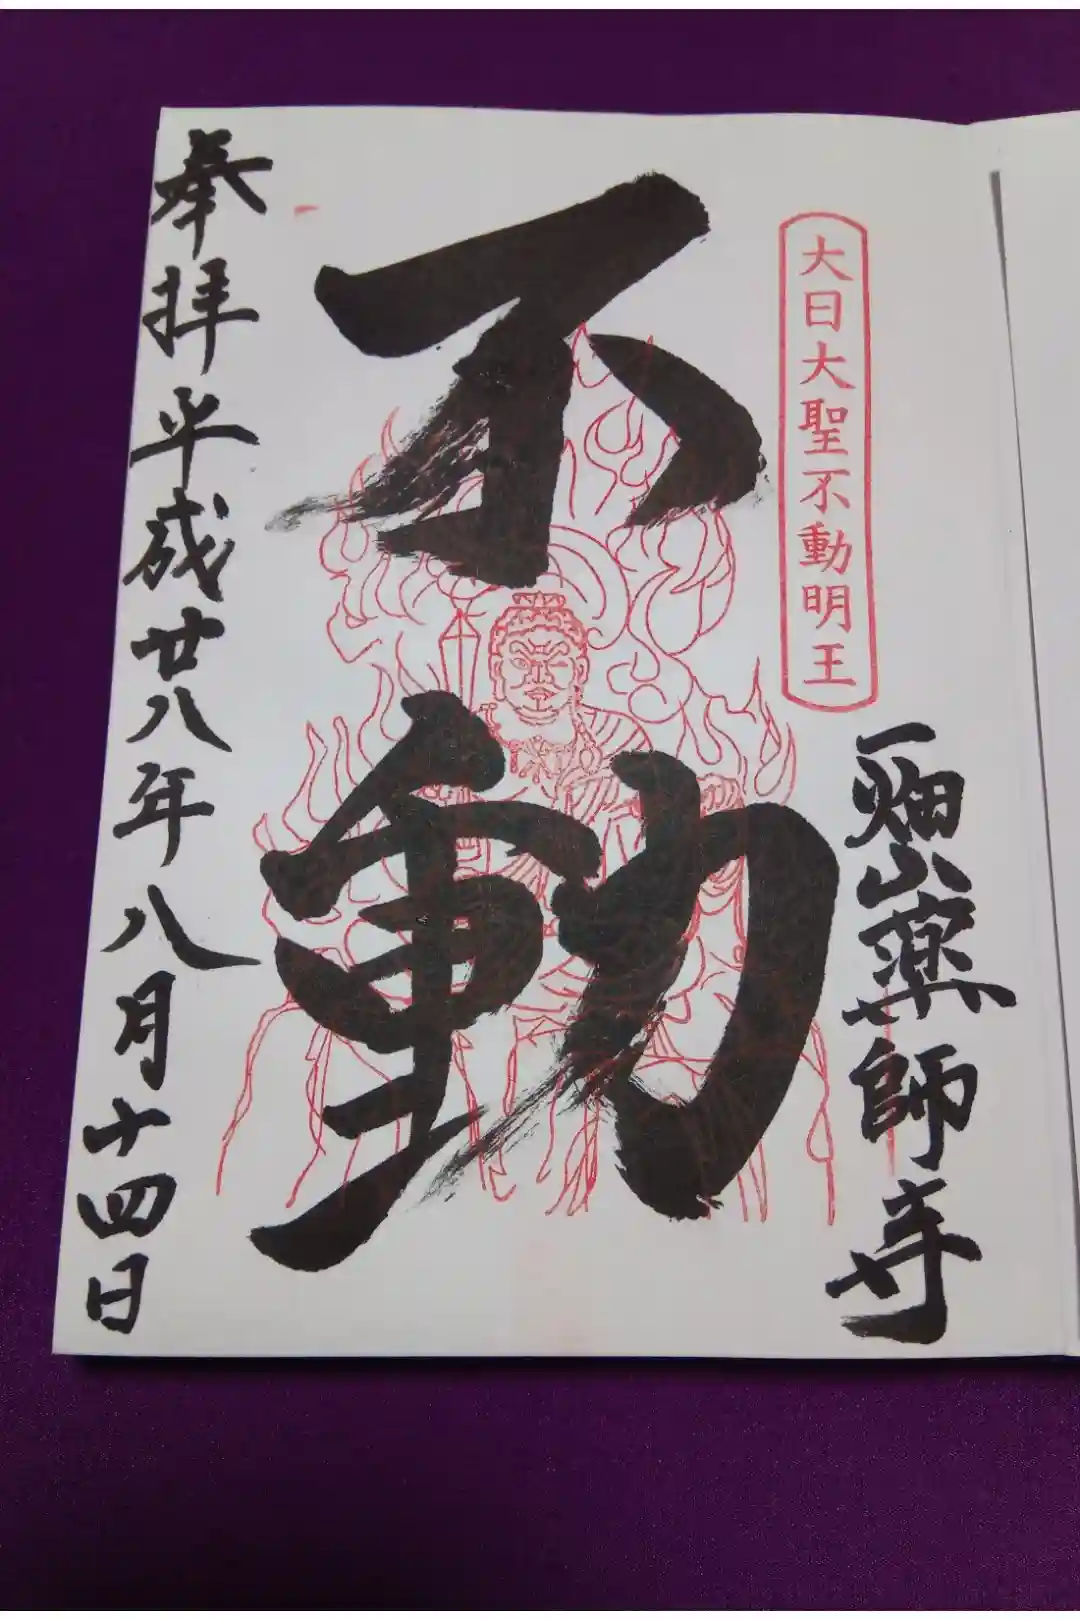 大日大聖不動明王
一畑山薬師寺
不動
奉拝平成廿八年八月十四日